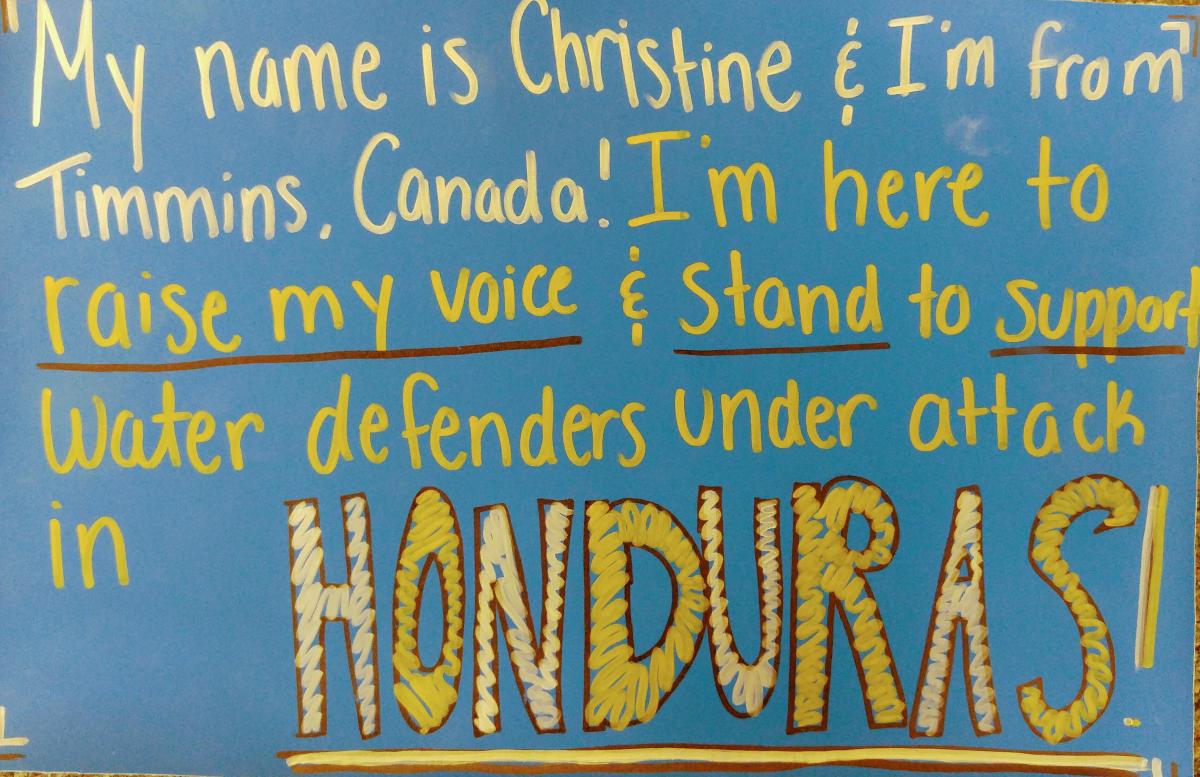 My name is Christine & I'm from
Timmins, Canada! I'm here to
raise my voice & stand to support
Water defenders under attack
in HONDURAS!